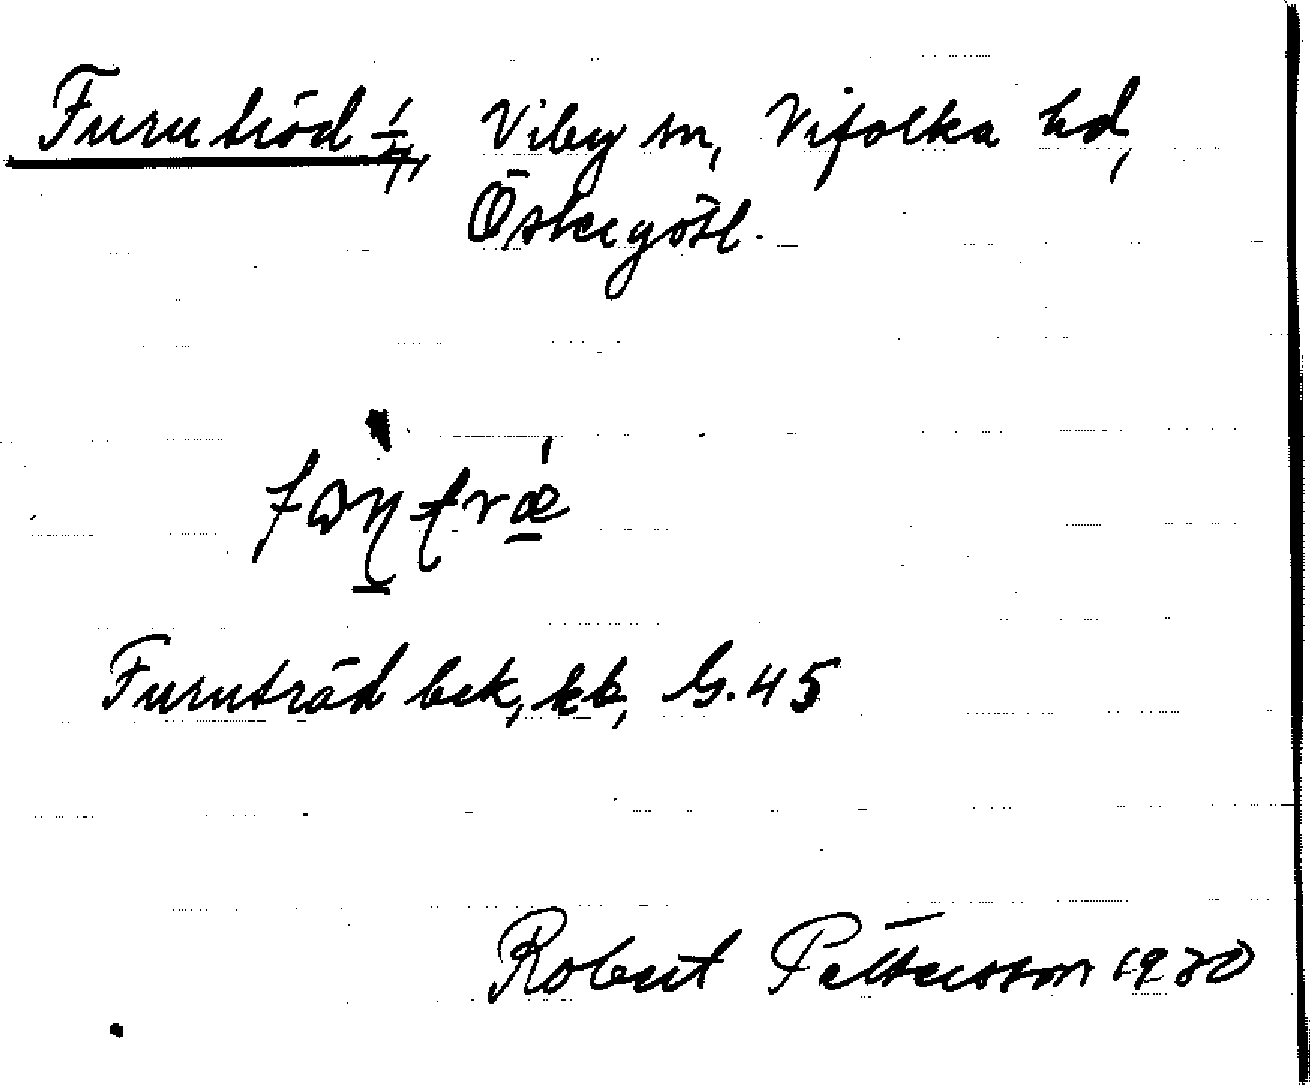 Furutröd 1/4, Viby sn, Vifolka hd,
Östergötl.
Furuträd bek, kb, G. 45
Robert Pettersson 1920